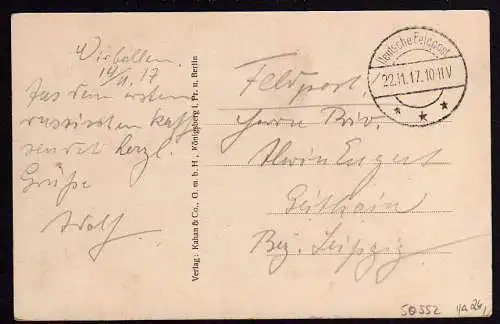 Wirballen.
19/11.17
Aus dem ersten
russischen Kaff
sendet herzl.
Grüße
Adolf.
Verlag: Kahan & Co., G. m. b. H., Königsberg i. Pr. u. Berlin
Feldpost.
Deutsche Feldpost
22.11.17.10-11V
Herrn Priv.
Alwin Engert
Geithain
Bez. Leipzig
50552